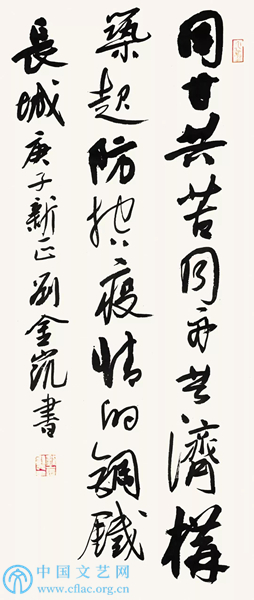 同甘共苦同舟共濟構
築起防控疫情的鋼鐵
長城 庚子新正 劉金凱書
中国文艺网
www.cflac.org.cn